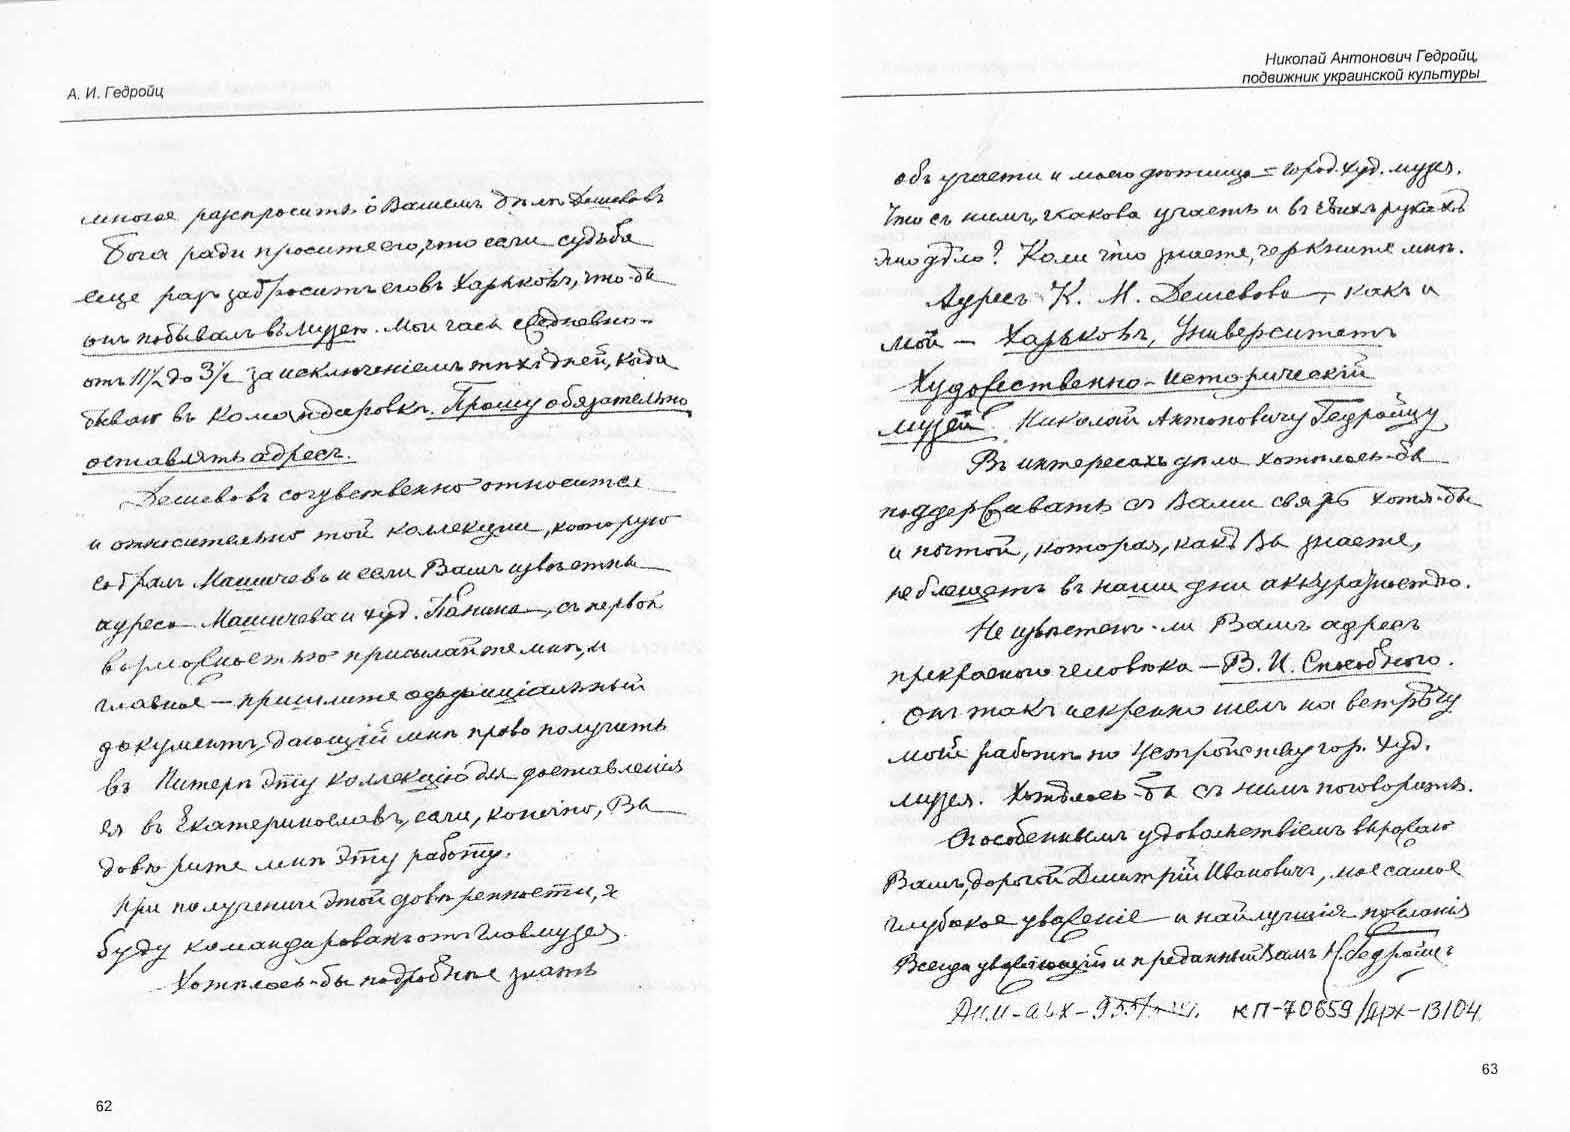 А. И. Гедройц
многое распросить о Вашемъ дѣлѣ Дешевовъ
Бога ради просите его, что если судьба
еще разъ забросить его въ Харьковъ, что-бы
онъ побывалъ въ музею. Мои часы ежедневно –
отъ 11½ до 3½ за исключеніемъ тѣхъ дней, когда
бываю въ командировкѣ. Прошу обязательно
оставлять адресъ.
Дешевовъ сочувственно относится
и относительно той коллекціи, которую
собралъ Машичевъ и если Вамъ извѣстны
адреса Машичева и худ. Панина –, съ первой
возможностью присылайте мнѣ, и
главное – пришлите оффиціальный
документъ, дающій мнѣ право получить
въ Питерѣ эту коллекцію для доставленія
ея въ Екатеринославъ, если, конечно, Вы
довѣрите мнѣ эту работу.
При полученіи этой довѣренности, я
буду командированъ отъ Главмузея.
Хотѣлось-бы подробнѣе знать
62
Николай Антонович Гедройц,
подвижник украинской культуры
объ участи и моего дѣтища = город. худ. музея.
Что съ нимъ, какова участь и въ чьихъ рукахъ
это дѣло? Коли что знаете, черкните мнѣ.
Адресъ К. М. Дешевова –, какъ и
мой – Харьковъ, Университетъ
Художественно-историческій
музей. Николаю Антоновичу Гедройцу
Въ интересахъ дѣла хотѣлось-бы
поддерживать съ Вами связь хотя-бы
и почтой, которая, какъ Вы знаете,
не блещетъ въ наши дни аккуратностью.
Не извѣстенъ-ли Вамъ адресъ
прекраснаго человѣка – В. И. Способнаго.
Онъ такъ искренно шелъ на встрѣчу
моей работѣ по устройству гор. худ.
музея. Хотѣлось-бы съ нимъ поговорить.
Съ особеннымъ удовольствіемъ выражаю
Вамъ, дорогой Дмитрій Ивановичъ, мое самое
глубокое уваженіе и наилучшія пожеланія
Всегда уважающій и преданный Вамъ Н. Гедройцъ
КП-70659/Арх-13104
63